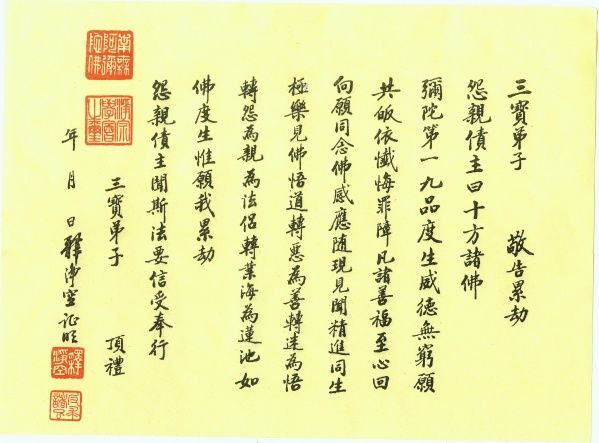 三寶弟子 敬告累劫
怨親債主曰十方諸佛
彌陀第一九品度生威德無窮願
共皈依懺悔罪障凡諸善福至心回
向願同念佛感應隨現見聞精進同生
極樂見佛悟道轉惡為善轉迷為悟
轉怨為親為法侶轉業海為蓮池如
佛度生惟願我累劫
怨親債主聞斯法要信受奉行
三寶弟子 頂禮
年 月 日釋淨空証明
南無阿彌陀佛
淨宗學會
釋淨空